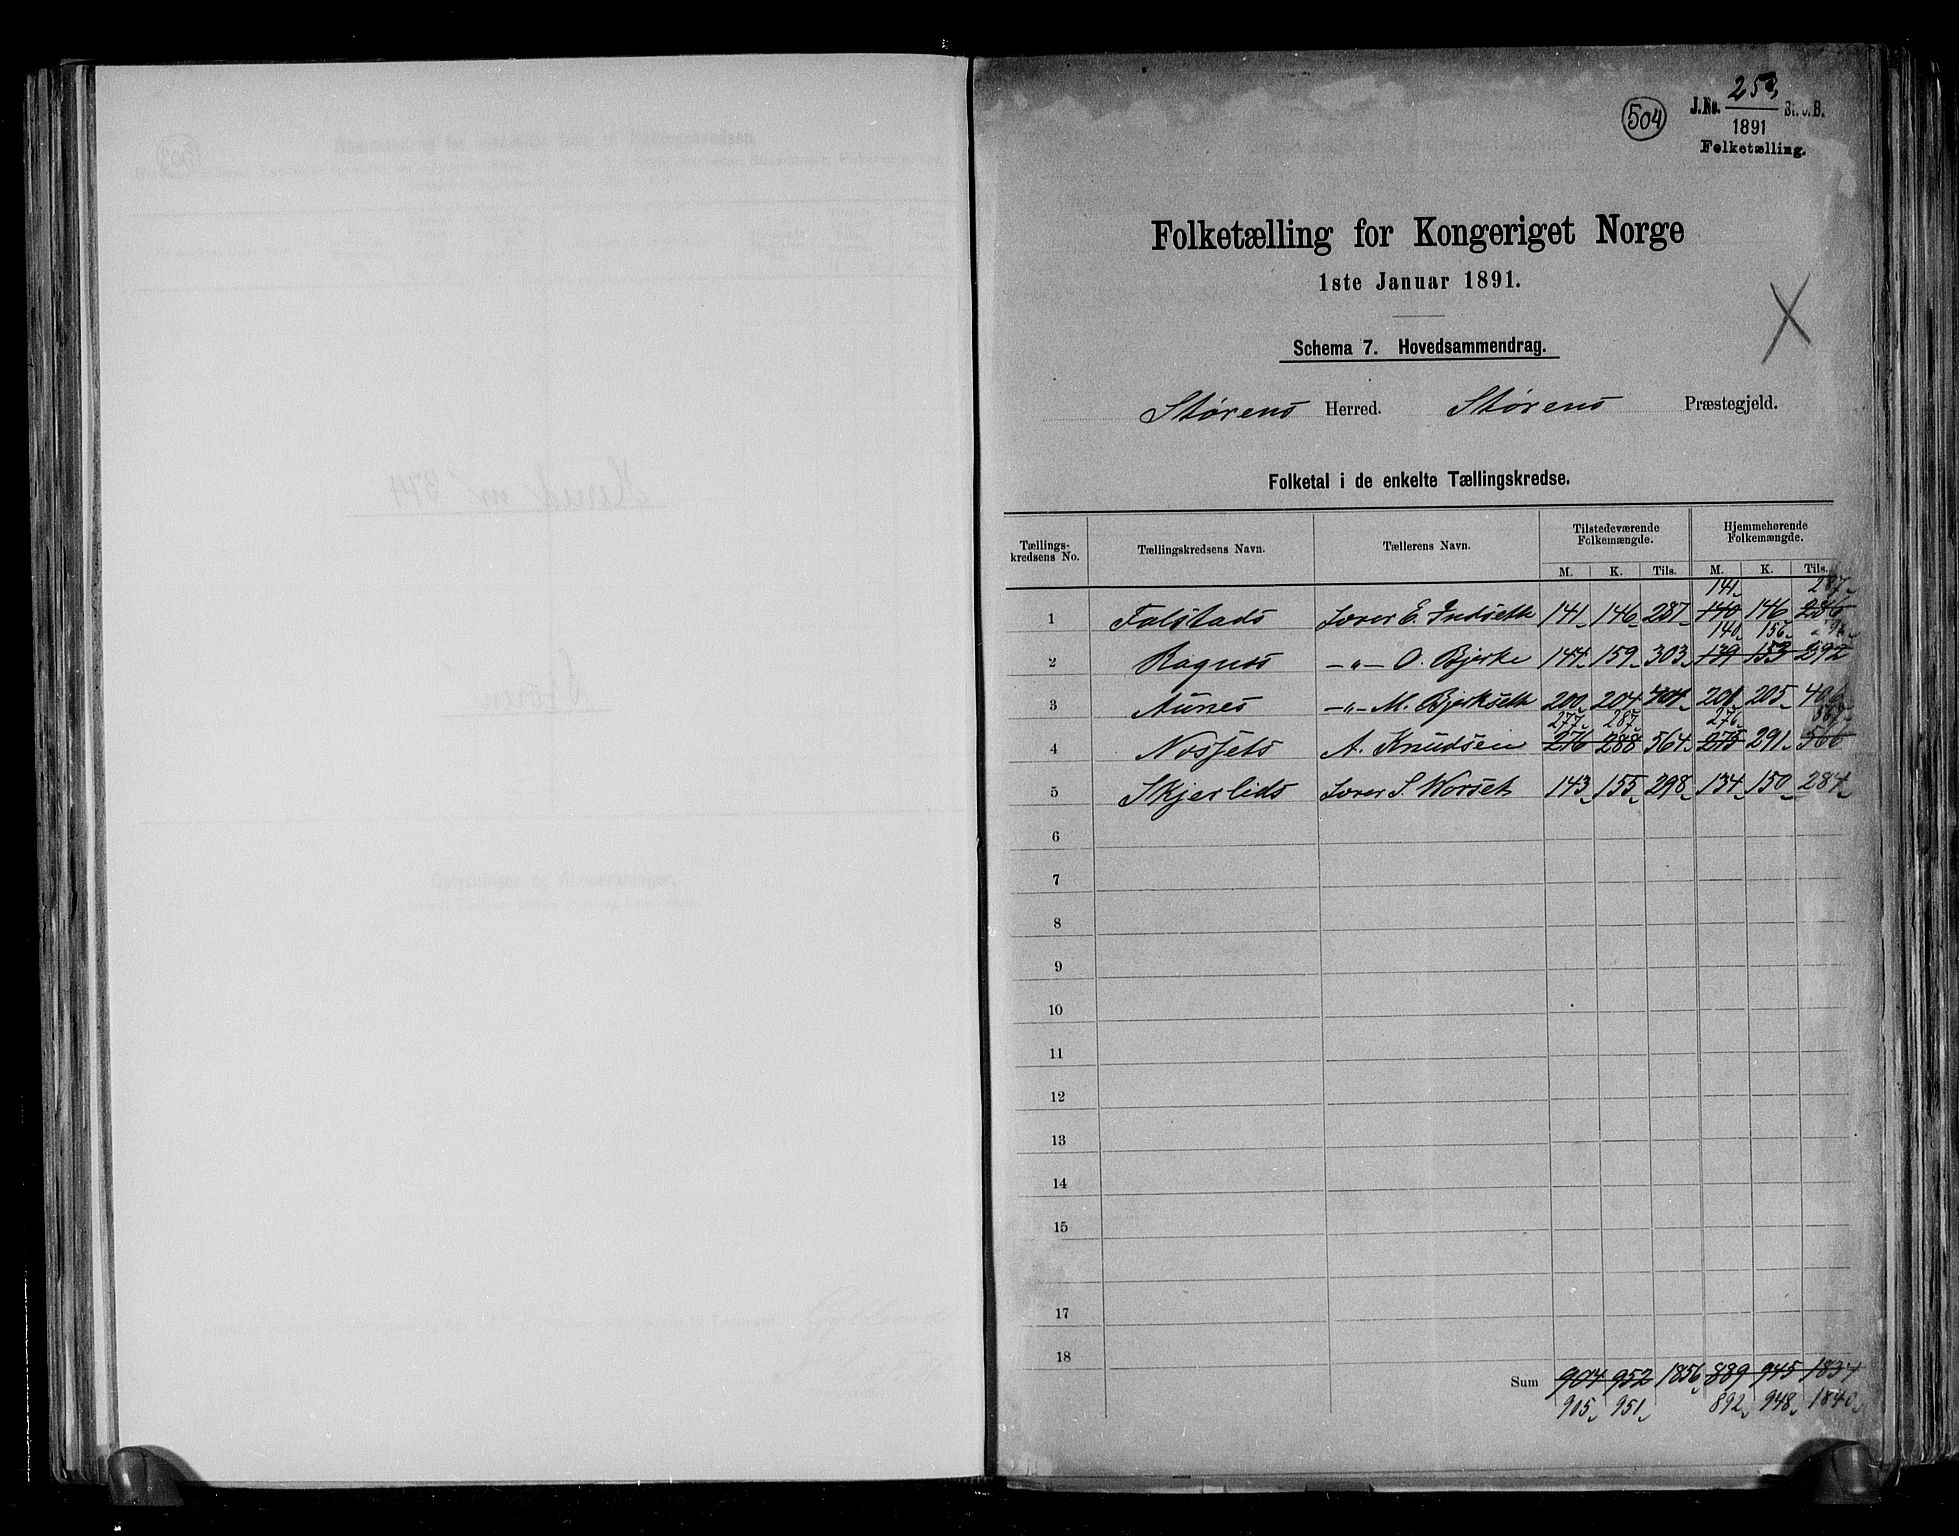 504
J.No. 253 St. C. B.
1891
Folketælling.
Folketælling for Kongeriget Norge
1ste Januar 1891.
Schema 7. Hovedsammendrag.
Størens Herred. Størens Præstegjeld.
Folketal i de enkelte Tællingskredse.
Tællings-kredsens No. Tællingskredsens Navn. Tællerens Navn. Tilstedeværende Folkemængde. Hjemmehørende Folkemængde.
M. K. Tils. M. K. Tils.
141 287
1 Folstads Lærer E. Indseth 141 146 287 140 146 286
140 156 296
2 Rognes -"- O. Bjerke 144 159 303 139 153 292
3 Aunes -"- M. Bjerkseth 200 204 404 201 205 406
277 287 276 567
4 A. Knudsen 276 288 564 275 291 566
5 Skjerlids Lærer S. Worset 143 155 298 134 150 284
6
7
8
9
10
11
12
13
14
15
17
18
Sum 904 952 1856 889 945 1834
905 951 892 948 1840